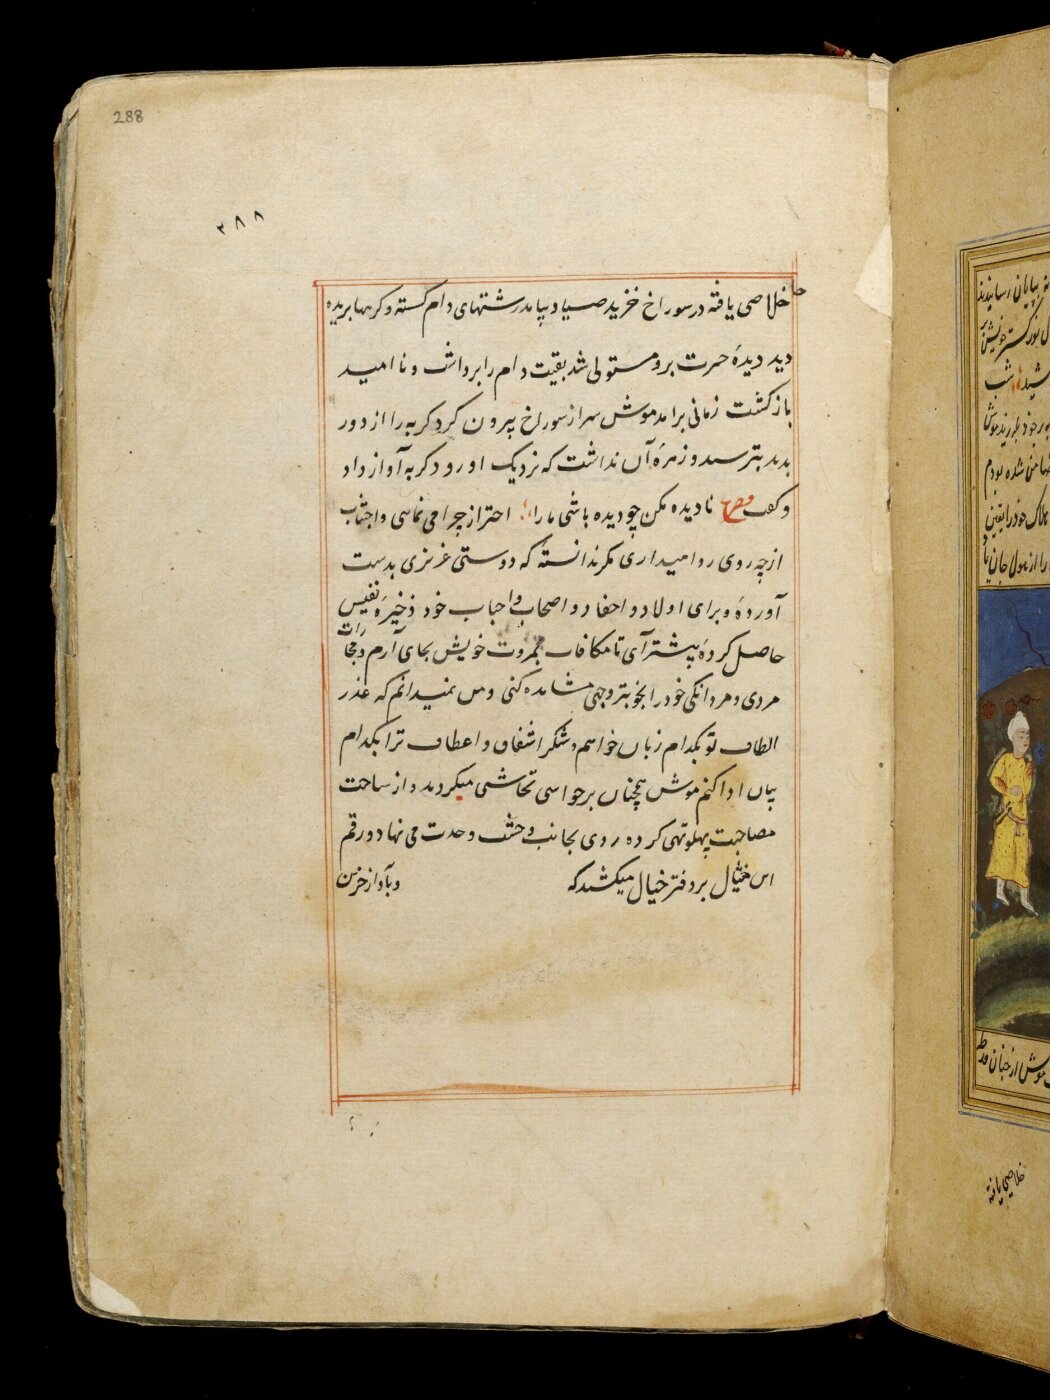 288
۲۸۸
خلاصی یافته در سوراخ خزید صیاد بیامد رشتهای دام کسته و کرهها بریده
دید دیدهٔ حیرت برو مستولی شد بقیت دام را برداشت و نا امید
باز کشت زمانی برامد موش سر از سوراخ بیرون کرد کربه را از دور
بدید بترسید و زهرهٔ آن نداشت که نزدیک او رود کربه آواز داد
و کفت مصرع نادیده مکن چو دیده باشی ما را احتراز چرا می نمایی و اجتناب
از چه روی روا میداری مکر ندانستهٔ که دوستی عزیزی بدست
آوردهٔ و برای اولاد و احفاد و اصحاب و احباب خود ذخیرهٔ نفیس
حاصل کردهٔ پیشتر آی تا مکافات مروت خویش بجای آرم و مجازات
مردی و مردانکی خود را بخوبتر وجهی مشاهده کنی و من نمیدانم که عذر
الطاف تو بکدام زبان خواهم و شکر اشفاق و اعطاف ترا بکدام
بیان ادا کنم موش همچنان بر حواسی تحاشی میکردند و از ساحت
مصاحبت پهلو تهی کرده روی بجانب وحشت وحدت می نهاد و رقم
این خیال بر دفتر خیال میکشید که
و بآواز حزین
بپایان رسانیدند
نور کستر خویش
شب
موش
شده بودم
موش از چنان
خلاصی یافته